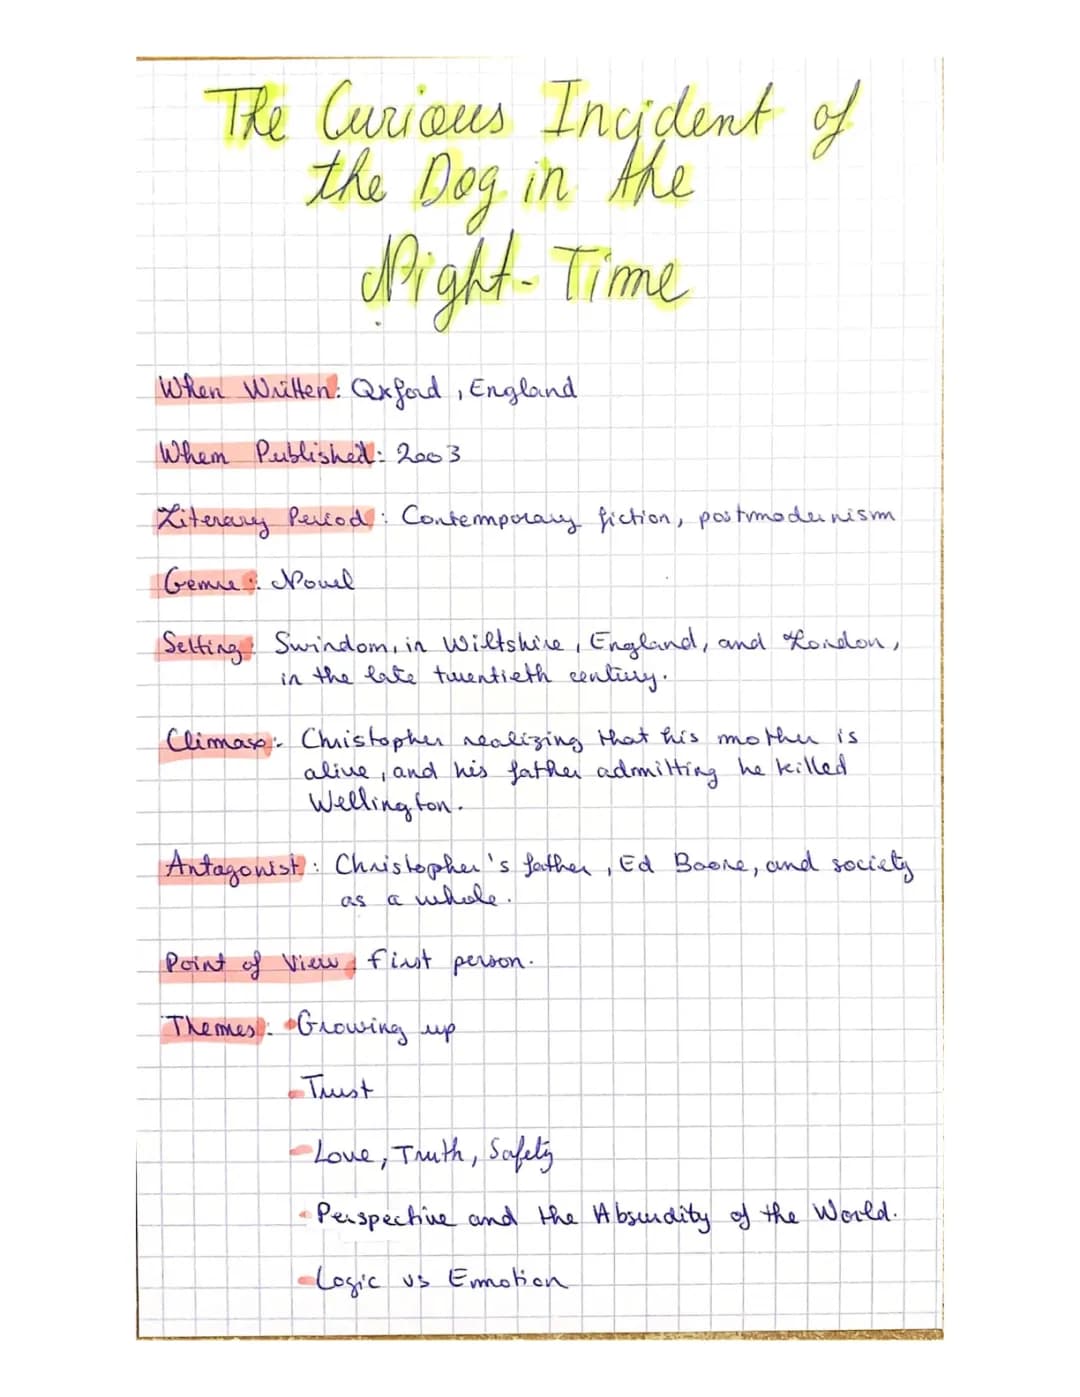 The Curious Incident of
the Dog in the
Night-Time
When Written: Oxford, England
When Published: 2003
Literary Period: Contemporary fiction, postmodernism
Genre: Novel
Setting: Swindom, in Wiltshire, England, and London,
in the late twentieth century.
Climax: Christopher realizing that his mother is
alive, and his father admitting he killed
Wellington.
Antagonist: Christopher's father, Ed Boone, and society
as a whole.
Point of View: first person.
Themes: •Growing up
-Trust
-Love, Truth, Safety
-Perspective and the Absurdity of the World.
-Logic vs Emotion